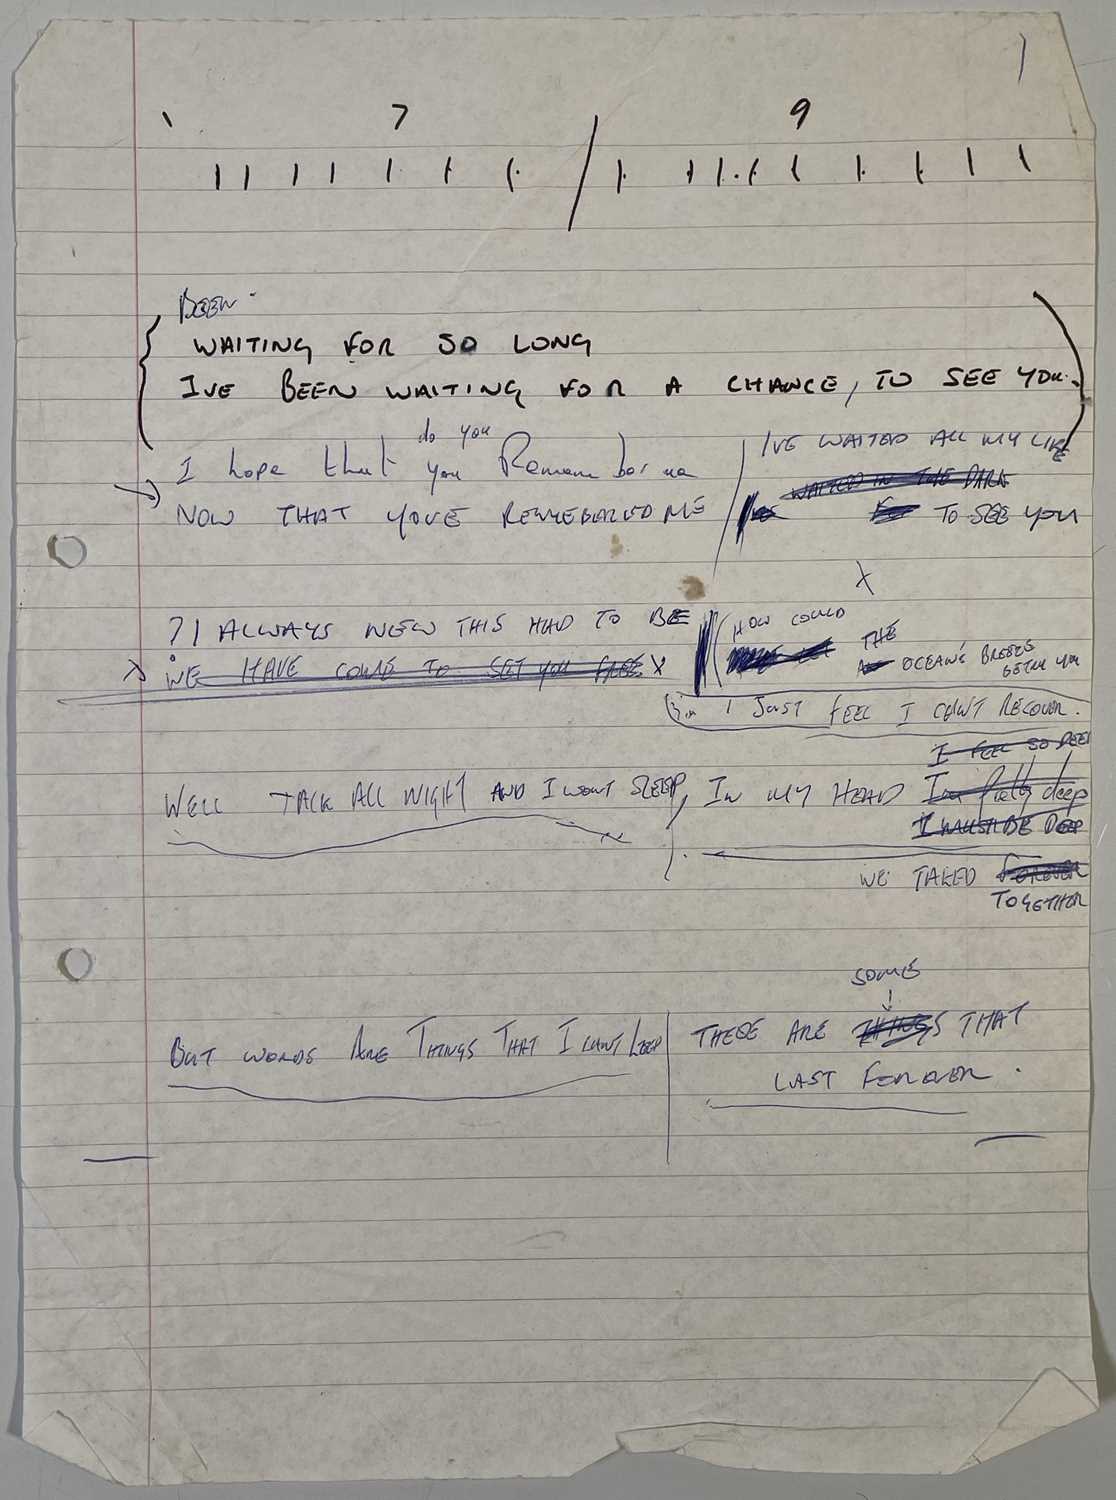 7 9
BEEN
WAITING FOR SO LONG
IVE BEEN WAITING FOR A CHANCE, TO SEE YOU.
do you
I hope that you Remember me
NOW THAT YOUVE REMEBERED ME
IVE WAITED ALL MY LIFE
WAITED IN THE DARK
TO SEE YOU
X
? I ALWAYS NEW THIS HAD TO BE
WE HAVE COME TO SET YOU FREE X
HOW COULD
THE
OCEANS BREEZE
I JUST FEEL I CANT RECOVER.
WELL TALK ALL NIGHT AND I WONT SLEEP,
IN MY HEAD
I FEEL SO DEEP
Im deep
I MUST BE DEEP
WE TALKED FOREVER
TOGETHER
BUT WORDS ARE THINGS THAT I CANT KEEP
SOME
THESE ARE THINGS THAT
LAST FOREVER.